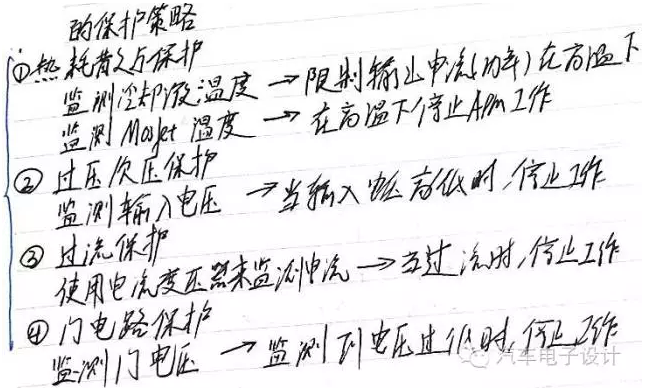 的保护策略
① 热耗散与保护
监测冷却液温度 → 限制输出电流(功率)在高温下
监测 Mosfet 温度 → 在高温下停止APM工作
② 过压欠压保护
监测输入电压 → 当输入电压高低时,停止工作
③ 过流保护
使用电流变压器来监测电流 → 当过流时,停止工作
④ 门电路保护
监测门电压 → 监测到电压过低时,停止工作
汽车电子设计